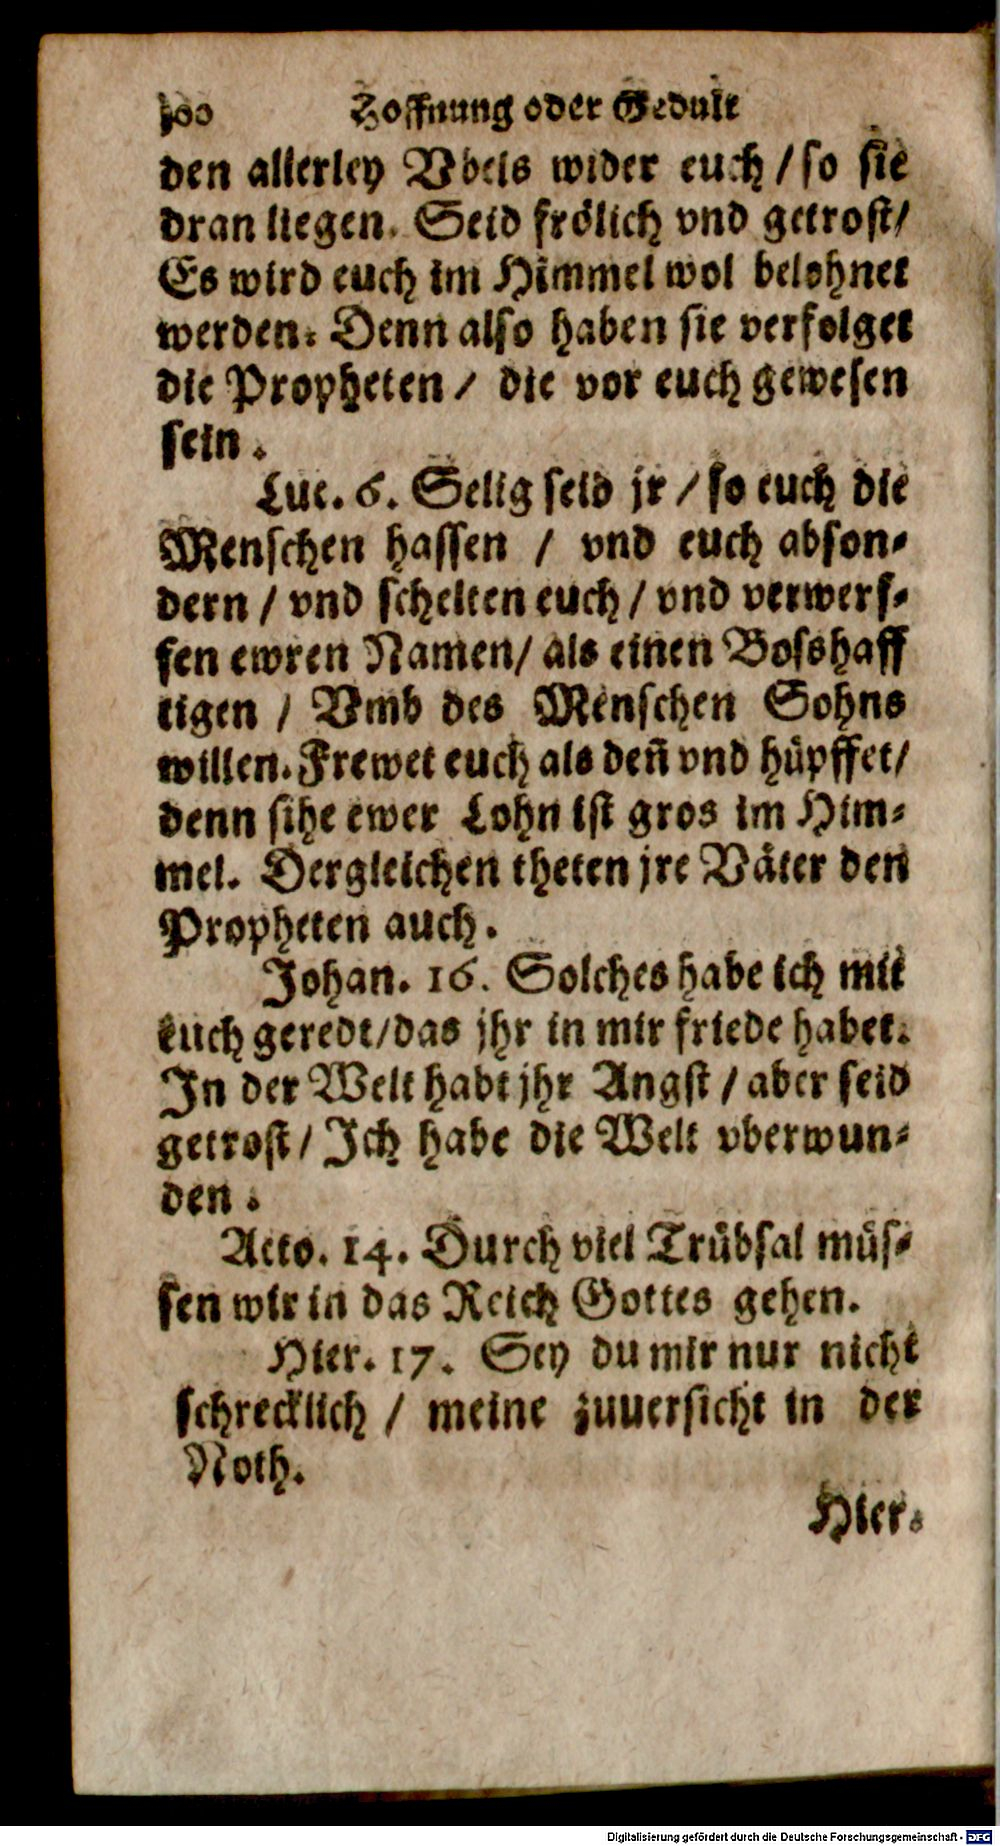 100 Hoffnung oder Gedult
den allerley Vbels wider euch / so sie
dran liegen. Seid frölich vnd getrost/
Es wird euch im Himmel wol belohnet
werden. Denn also haben sie verfolget
die Propheten / die vor euch gewesen
sein.
Luc. 6. Selig seid jr / so euch die
Menschen hassen / vnd euch abson-
dern / vnd schelten euch / vnd verwerf-
fen ewren Namen/ als einen Bosshaff
tigen / Vmb des Menschen Sohns
willen. Frewet euch als deñ vnd hüpffet/
denn sihe ewer Lohn ist gros im Him-
mel. Dergleichen theten jre Väter den
Propheten auch.
Johan. 16. Solches habe ich mit
euch geredt/das jhr in mir friede habet.
In der Welt habt jhr Angst / aber seid
getrost/ Ich habe die Welt vberwun-
den.
Acto. 14. Durch viel Trübsal müs-
sen wir in das Reich Gottes gehen.
Hier. 17. Sey du mir nur nicht
schrecklich / meine zuuersicht in der
Noth.
Hier.
Digitalisierung gefördert durch die Deutsche Forschungsgemeinschaft - DFG